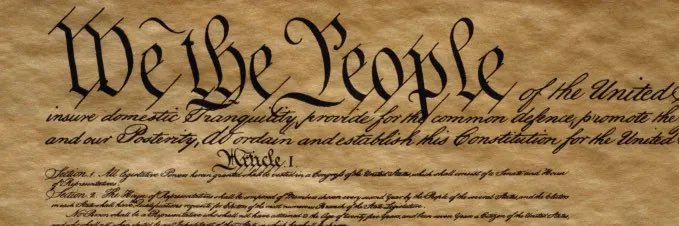 We the People of the United
insure domestic Tranquility, provide for the common defence, promote the
and our Posterity, do ordain and establish this Constitution for the United
Article. I.
Section. 1. All legislative Powers herein granted shall be vested in a Congress of the United States, which shall consist of a Senate and House
of Representatives.
Section. 2. The House of Representatives shall be composed of Members chosen every second Year by the People of the several States, and the Electors
in each State shall have Qualifications requisite for Electors of the most numerous Branch of the State Legislature.
No Person shall be a Representative who shall not have attained to the Age of twenty five Years, and been seven Years a Citizen of the United States,